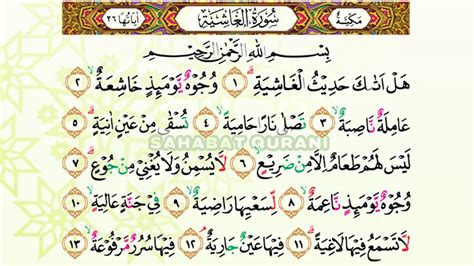 مكية سورة الغاشية آياتها ٢٦
بِسْمِ اللّٰهِ الرَّحْمٰنِ الرَّحِيْمِ
هَلْ اَتٰىكَ حَدِيْثُ الْغَاشِيَةِ ١ وُجُوْهٌ يَّوْمَىِٕذٍ خَاشِعَةٌ ٢
عَامِلَةٌ نَّاصِبَةٌ ٣ تَصْلٰى نَارًا حَامِيَةً ٤ تُسْقٰى مِنْ عَيْنٍ اٰنِيَةٍ ٥
SAHABAT QURANI
لَيْسَ لَهُمْ طَعَامٌ اِلَّا مِنْ ضَرِيْعٍ ٦ لَّا يُسْمِنُ وَلَا يُغْنِيْ مِنْ جُوْعٍ ٧
وُجُوْهٌ يَّوْمَىِٕذٍ نَّاعِمَةٌ ٨ لِّسَعْيِهَا رَاضِيَةٌ ٩ فِيْ جَنَّةٍ عَالِيَةٍ ١٠
لَّا تَسْمَعُ فِيْهَا لَاغِيَةً ١١ فِيْهَا عَيْنٌ جَارِيَةٌ ١٢ فِيْهَا سُرُرٌ مَّرْفُوْعَةٌ ١٣